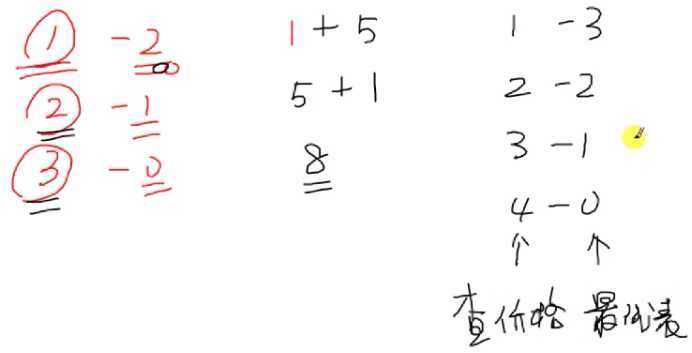 1 - 2 1 + 5 1 - 3
2 - 1 5 + 1 2 - 2
3 - 0 8 3 - 1
4 - 0
↑ ↑
查价格 最优表